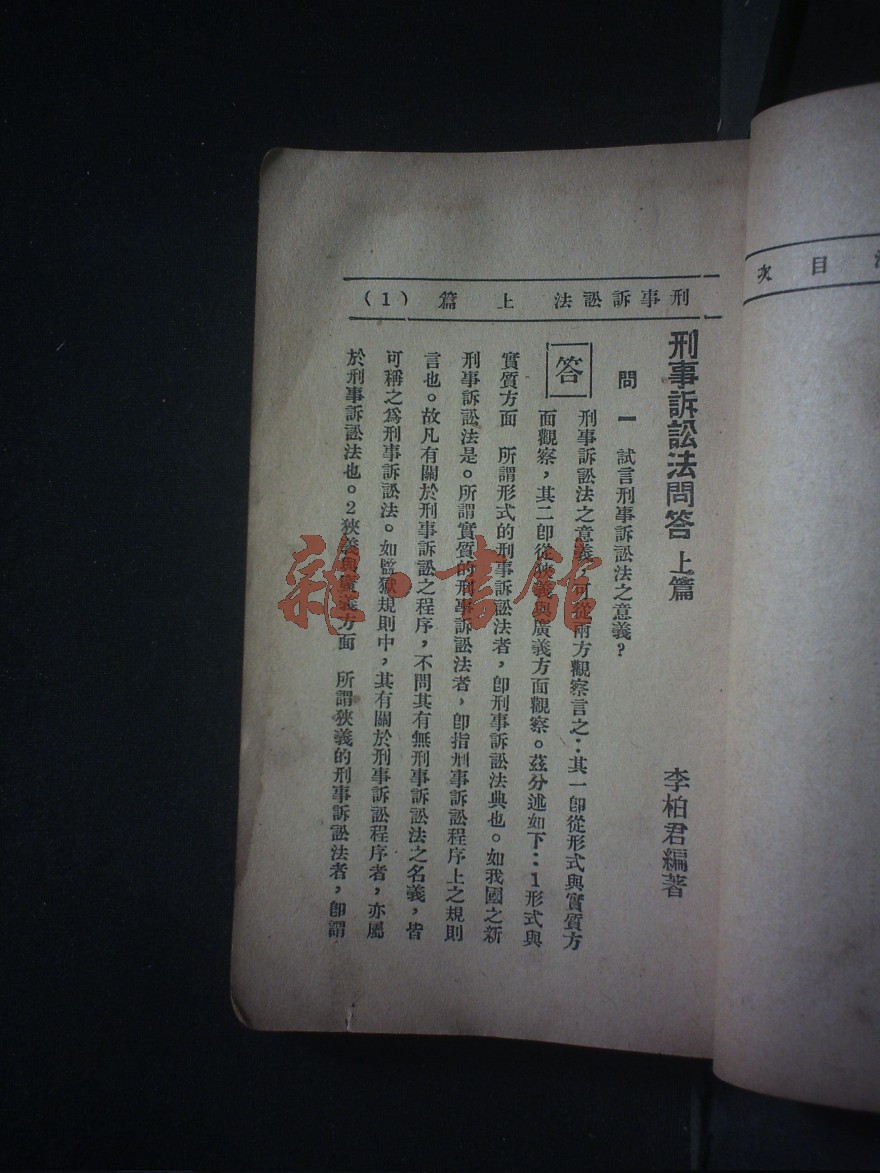 刑事訴訟法 上 篇 (1)
刑事訴訟法問答 上篇 李柏君編著
問 一 試言刑事訴訟法之意義?
答 刑事訴訟法之意義,可從兩方觀察言之:其一卽從形式與實質方
面觀察,其二卽從狹義與廣義方面觀察。茲分述如下:1形式與
實質方面 所謂形式的刑事訴訟法者,卽刑事訴訟法典也。如我國之新
刑事訴訟法是。所謂實質的刑事訴訟法者,卽指刑事訴訟程序上之規則
言也。故凡有關於刑事訴訟之程序,不問其有無刑事訴訟法之名義,皆
可稱之爲刑事訴訟法。如監獄規則中,其有關於刑事訴訟程序者,亦屬
於刑事訴訟法也。2狹義與廣義方面 所謂狹義的刑事訴訟法者,卽謂
目 次
雜·書館